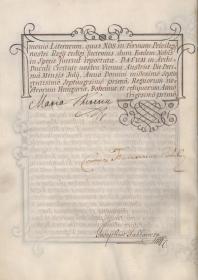 monio Literarum, quas NOS in Formam Privilegii
nostri Regij redigi facientes, dum Eadem Nobis
in Specie fuerint reportatæ. DATUM in Archi-
Ducali Civitate nostra Vienna Austriæ Die
Mensis Julij, Anno Domini millesimo septin-
gentesimo Septuagesimo primo, Regnorum no-
strorum Hungariæ, Bohemiæ et reliquorum Anno
trigesimo primo
Maria Theresia
Comes Franciscus
Josephus